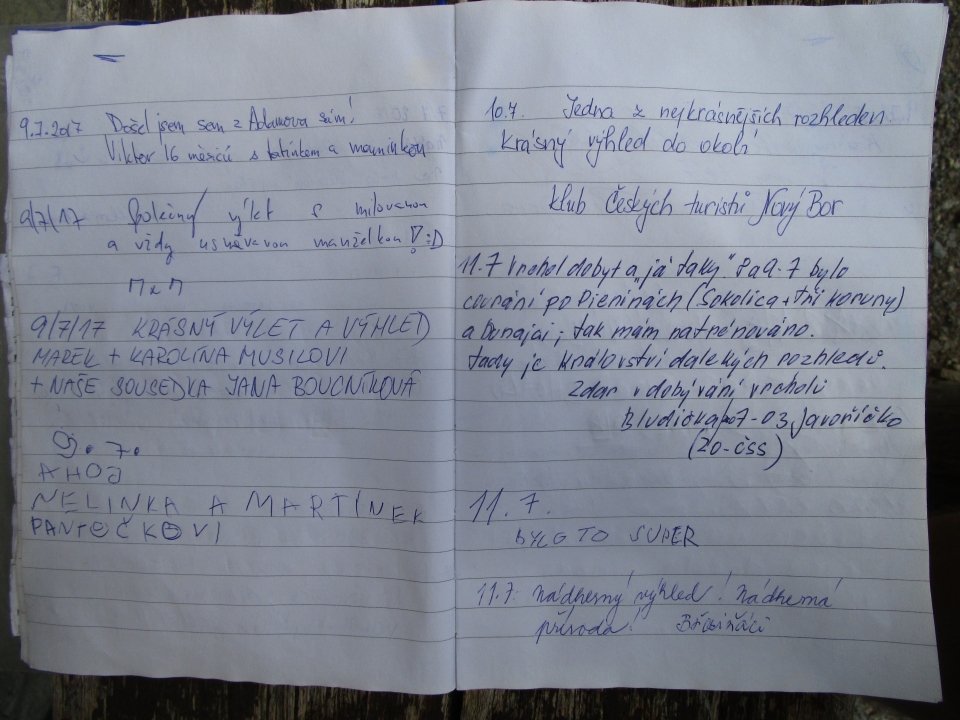 9.7.2017 Došel jsem sem z Adamova sám!
Viktor 16 měsíců s tatínkem a maminkou
9/7/17 Společný výlet s milovanou
a vždy usměvavou manželkou :D
9/7/17 KRÁSNÝ VÝLET A VÝHLED
MAREK + KAROLÍNA MUSILOVI
+ NAŠE SOUSEDKA JANA BOUČNÍKOVÁ
9. 7.
AHOJ
NELINKA A MARTÍNEK
PANTOČKOVI
10.7. Jedna z nejkrásnějších rozhleden.
Krásný výhled do okolí
Klub Českých turistů Nový Bor
11.7 Vrchol dobyt a "já taky" 7.a 9.7 bylo
courání po Pieninách (Sokolica + tři koruny)
a Dunajci; tak mám natrénováno.
Tady je království dalekých rozhledů.
Zdar v dobývání vrcholů
07-03 Javoříčko
(ZO-ČSS)
11.7.
BYLO TO SUPER
11.7. nádherný výhled! nádherná
příroda!